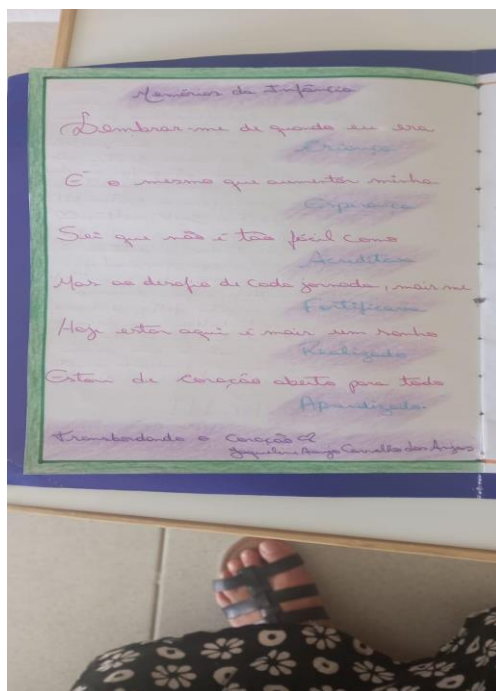 Memórias da Infância
Lembrar-me de quando eu era
Criança
É o mesmo que aumentar minha
Esperança
Sei que não é tão fácil como
Acreditava
Mas ao desafio de cada jornada, mais me
Fortificava
Hoje estar aqui é mais um sonho
Realizado
Estou de coração aberto para todo
Aprendizado.
Transbordando o coração
Jaqueline Araujo Carvalho dos Anjos